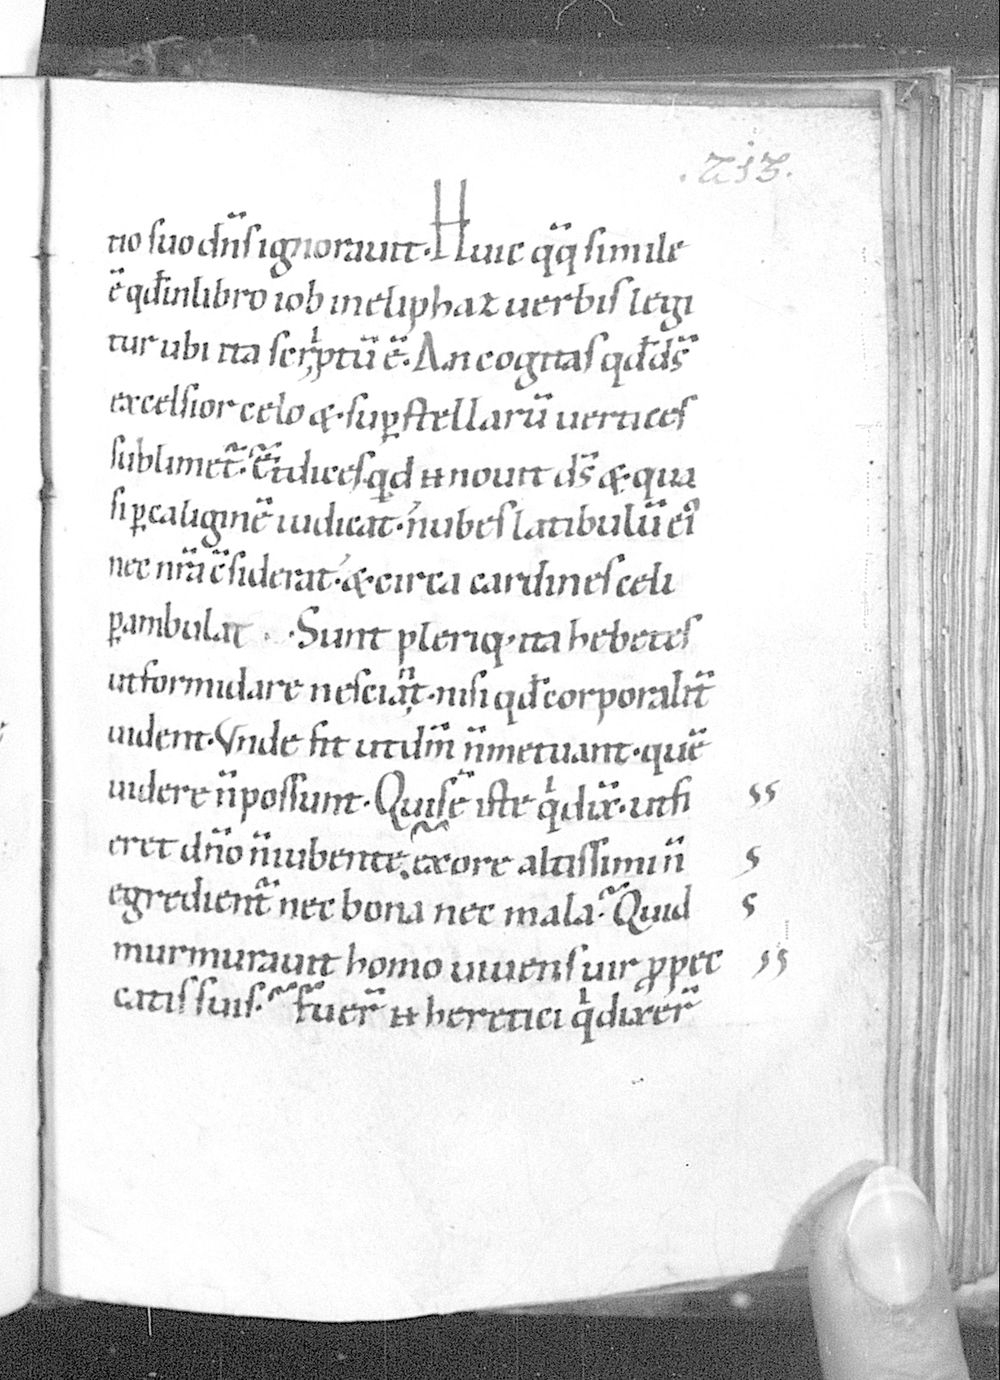 .213.
tio suo dn̄s ignorauit· Huic q̄q simile
ē qd̄ in libro iob in eliphaz uerbis legi
tur ubi ita scriptū ē· An cogitas qd̄ ds̄
excelsior celo & sup̱ stellarū uertices
sublimet᷑· Et dices· qd̄ n nouit ds̄ & qua
si p̱ caliginē iudicat· nubes latibulū ei᷒
nec nr̄a c̄siderat· & circa cardines celi
p̱ambulat· Sunt pleriq· ita hebetes
ut formidare nesciāt· nisi qd̄ corporalit᷑
uident· Vnde fit ut dm̄ n̄ metuant· quē
uidere n̄ possunt· Quis ē iste qi dix̄· ut fi
eret dn̄o n̄ iubente; ex ore altissimi n̄
egredient᷑ nec bona nec mala· Quid
murmurauit homo uiuens uir ꝓ pec
catis suis· fuer̄ n heretici qi dixer̄
ss
s
s
ss